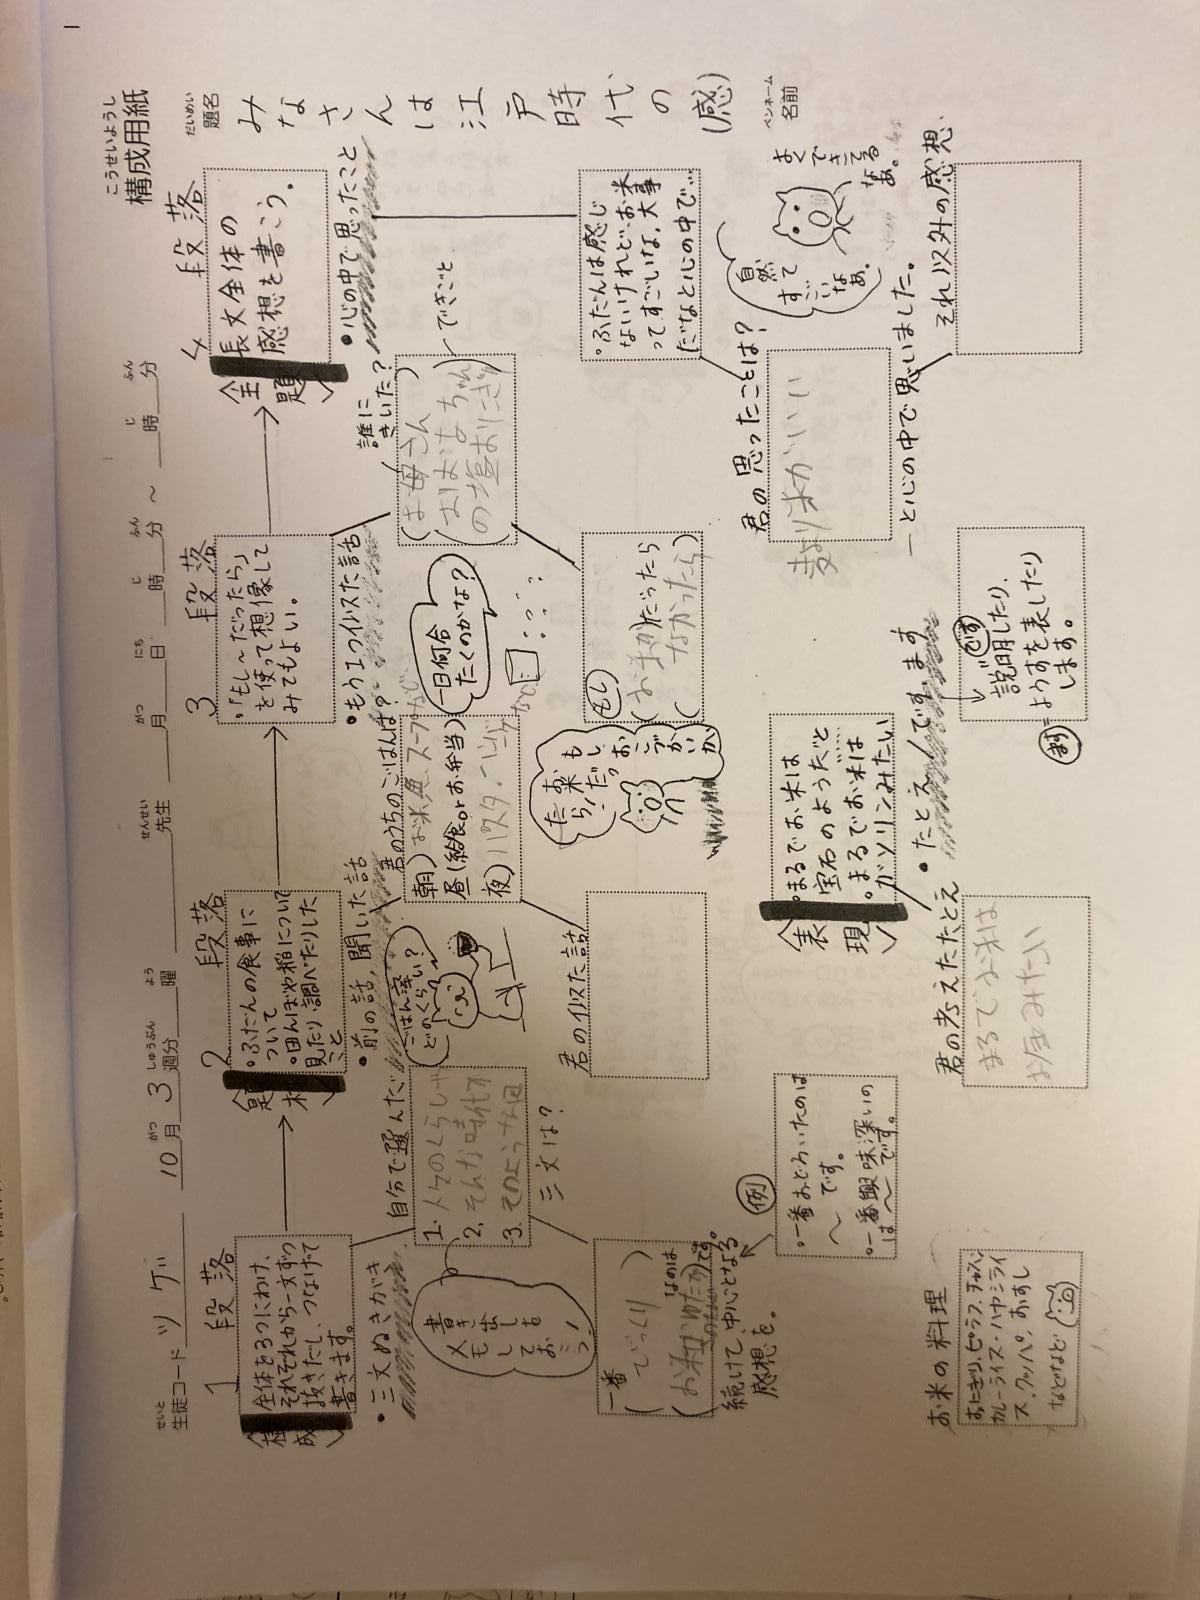 こうせいようし
構成用紙
だいめい
題名
みなさんは江戸時代の(感)
ペンネーム
名前
せいと
生徒コード ツゲ
10月3週分 曜
せんせい
先生
月 日 時 分 ～ 時 分
1段落
〈構成〉
全体を3つにわけ、
それぞれから一文ずつ
抜きだし、つなげて
書きます。
・三文ぬきがき
自分で選んだ
三文は?
1. 人々のくらし
2. そんな時代
3. そのような
書き出しも
メモして
おこう!
一番
( びっくり )なのは
(お米がゆたか)です。
続けて、中心となる
感想を。
例
・一番おどろいたのは
～です。
・一番興味深いの
は～です。
お米の料理
おにぎり、ピラフ、チャーハン
カレーライス・ハヤシライ
ス、クッパ、おすし
などなど
2段落
〈題材〉
・ふだんの食事に
ついて
・田んぼや稲について
見たり、調べたりした
こと
・前の話、聞いた話
君のうちのごはんは?
朝)お米 魚 スープ
昼(給食orお弁当)
夜)パスタ
ごはん茶わん
どのくらい?
一日何合
たくのかな?
君の似た話
〈表現〉
・まるでお米は
宝石のようだと
・まるでお米は
ガソリンみたい
・たとえ
君の考えたたとえ
まるでお米は
お金みたい
3段落
・「もし～だったら」
を使って想像して
みてもよい。
・もう1つ似た話
誰に
きいた?
(お母さん )
(おばあちゃん
の塩おにぎり)
できごと
もし
(お米が)だったら
( なかったら)
もし、おこづかいが
お米だっ
たら!
・たとえ/です、ます
「です」
説明したり、
ようすを表したり
します。
4段落
〈全題〉
長文全体の
感想を書こう。
・心の中で思ったこと
・ふだんは感じ
ないけれど、お米
ってすごいな、大事
だなと心の中で…
君の思ったことは?
麦より米がいい
―と心の中で思いました。
自然って
すごい
なあ。
よく
できてる
なあ。
それ以外の感想